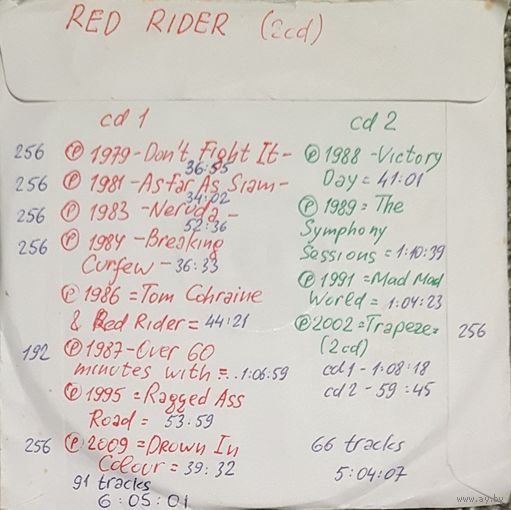 RED RIDER (2cd)
cd 1
256 Ⓟ 1979-Don't Fight It-
36:55
256 Ⓟ 1981-As far As Siam-
34:02
256 Ⓟ 1983-Neruda-
52:36
256 Ⓟ 1984-Breaking
Curfew-36:33
Ⓟ 1986=Tom Cohraine
& Red Rider=44:21
192 Ⓟ 1987-Over 60
minutes with=..1:06:59
Ⓟ 1995=Ragged Ass
Road= 53:59
256 Ⓟ 2009=Drown In
Colour=39:32
91 tracks
6:05:01
cd 2
Ⓟ 1988-Victory
Day=41:01
Ⓟ 1989=The
Symphony
Sessions=1:10:39
Ⓟ 1991=Mad Mad
World=1:04:23
Ⓟ 2002=Trapeze= 256
(2cd)
cd1-1:08:18
cd2-59:45
66 tracks
5:04:07
www.ay.by